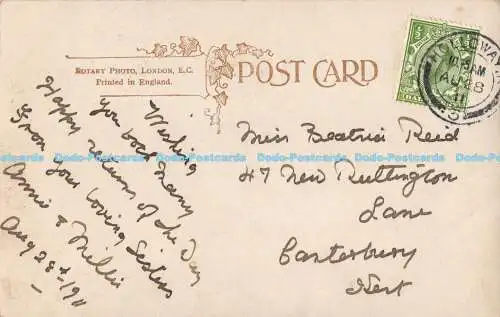 ROTARY PHOTO, LONDON, E.C.
Printed in England.
POST CARD
HOLLOWAY
AU 28
11
Wishing
you both Many
Happy returns of the Day
From your loving Sisters
Annie & Millie
Aug 28th 1911
Miss Beatrice Reid
47 New Ruttington
Lane
Canterbury
Kent
Dodo-Postcards Dodo-Postcards Dodo-Postcards Dodo-Postcards Dodo-Postcards